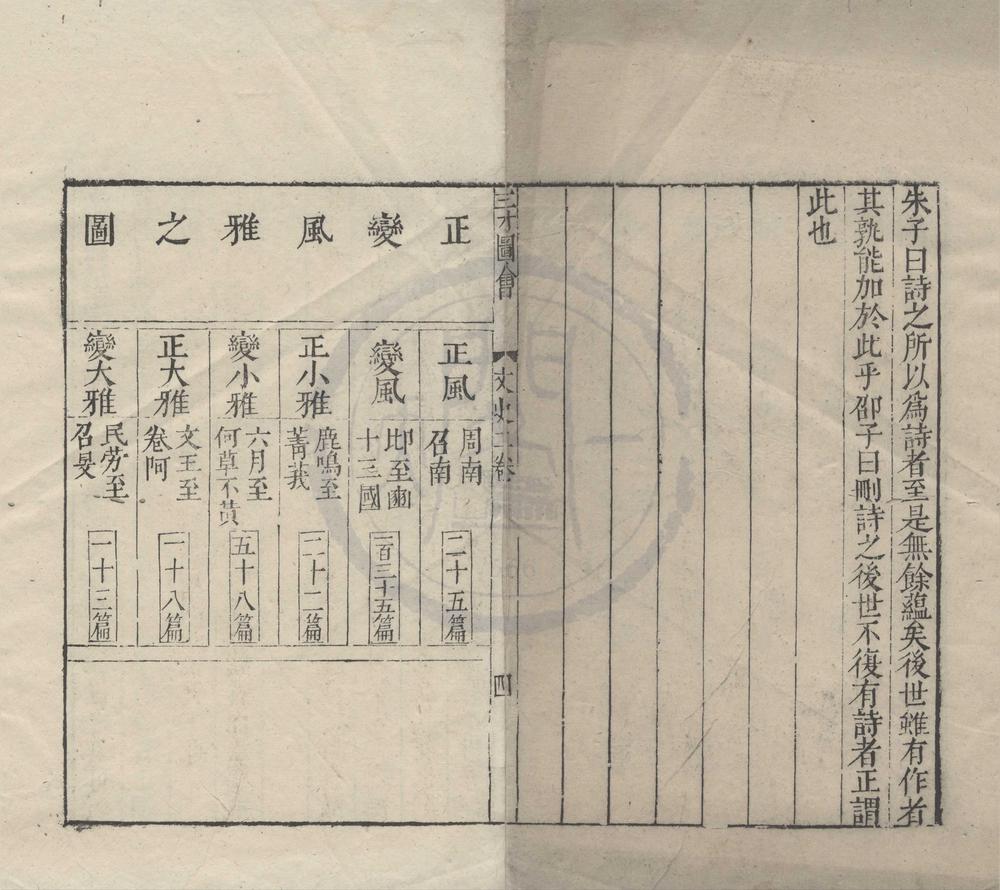 朱子曰詩之所以為詩者至是無餘蘊矣後世雖有作者
其孰能加於此乎邵子曰刪詩之後世不復有詩者正謂
此也
三才圖會
文史一卷
四
正變風雅之圖
正風
周南
召南
二十五篇
變風
邶至豳
十三國
一百三十五篇
正小雅
鹿鳴至
菁莪
二十二篇
變小雅
六月至
何草不黃
五十八篇
正大雅
文王至
卷阿
一十八篇
變大雅
民勞至
召旻
一十三篇